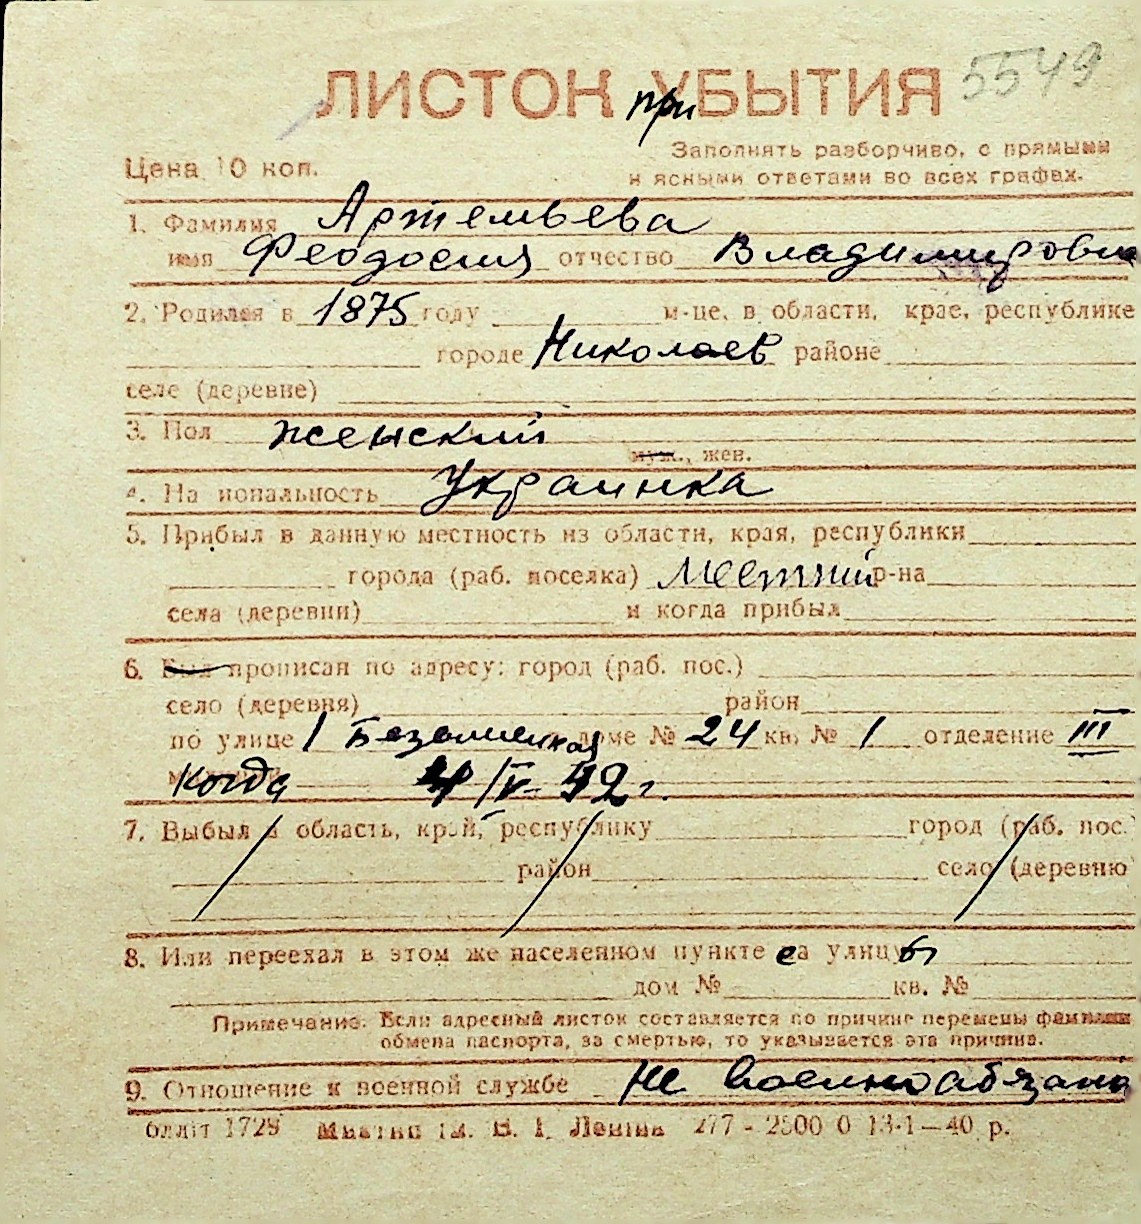 ЛИСТОК при УБЫТИЯ 5549
Цена 10 коп.
Заполнять разборчиво, с прямыми
и ясными ответами во всех графах.
1. Фамилия Артемьева
имя Феодосия отчество Владимировна
2. Родился в 1875 году м-це, в области, крае, республике
городе Николаев районе
селе (деревне)
3. Пол женский
муж., жен.
4. Национальность Украинка
5. Прибыл в данную местность из области, края, республики
города (раб. поселка) Местный р-на
села (деревни) и когда прибыл
6. Был прописан по адресу: город (раб. пос.)
село (деревня) район
по улице 1 Безоменная доме № 24 кв. № 1 отделение III
когда 4/V-42 г.
7. Выбыл в область, край, республику город (раб. пос.
район село (деревню
8. Или переехал в этом же населенном пункте са улицы
дом № кв. №
Примечание: Если адресный листок составляется по причине перемены фамилии
обмена паспорта, за смертью, то указывается эта причина.
9. Отношение к военной службе не военнообязана
блліт 1729 ім. В. І. Леніна 277 - 2500 0 13-1—40 р.